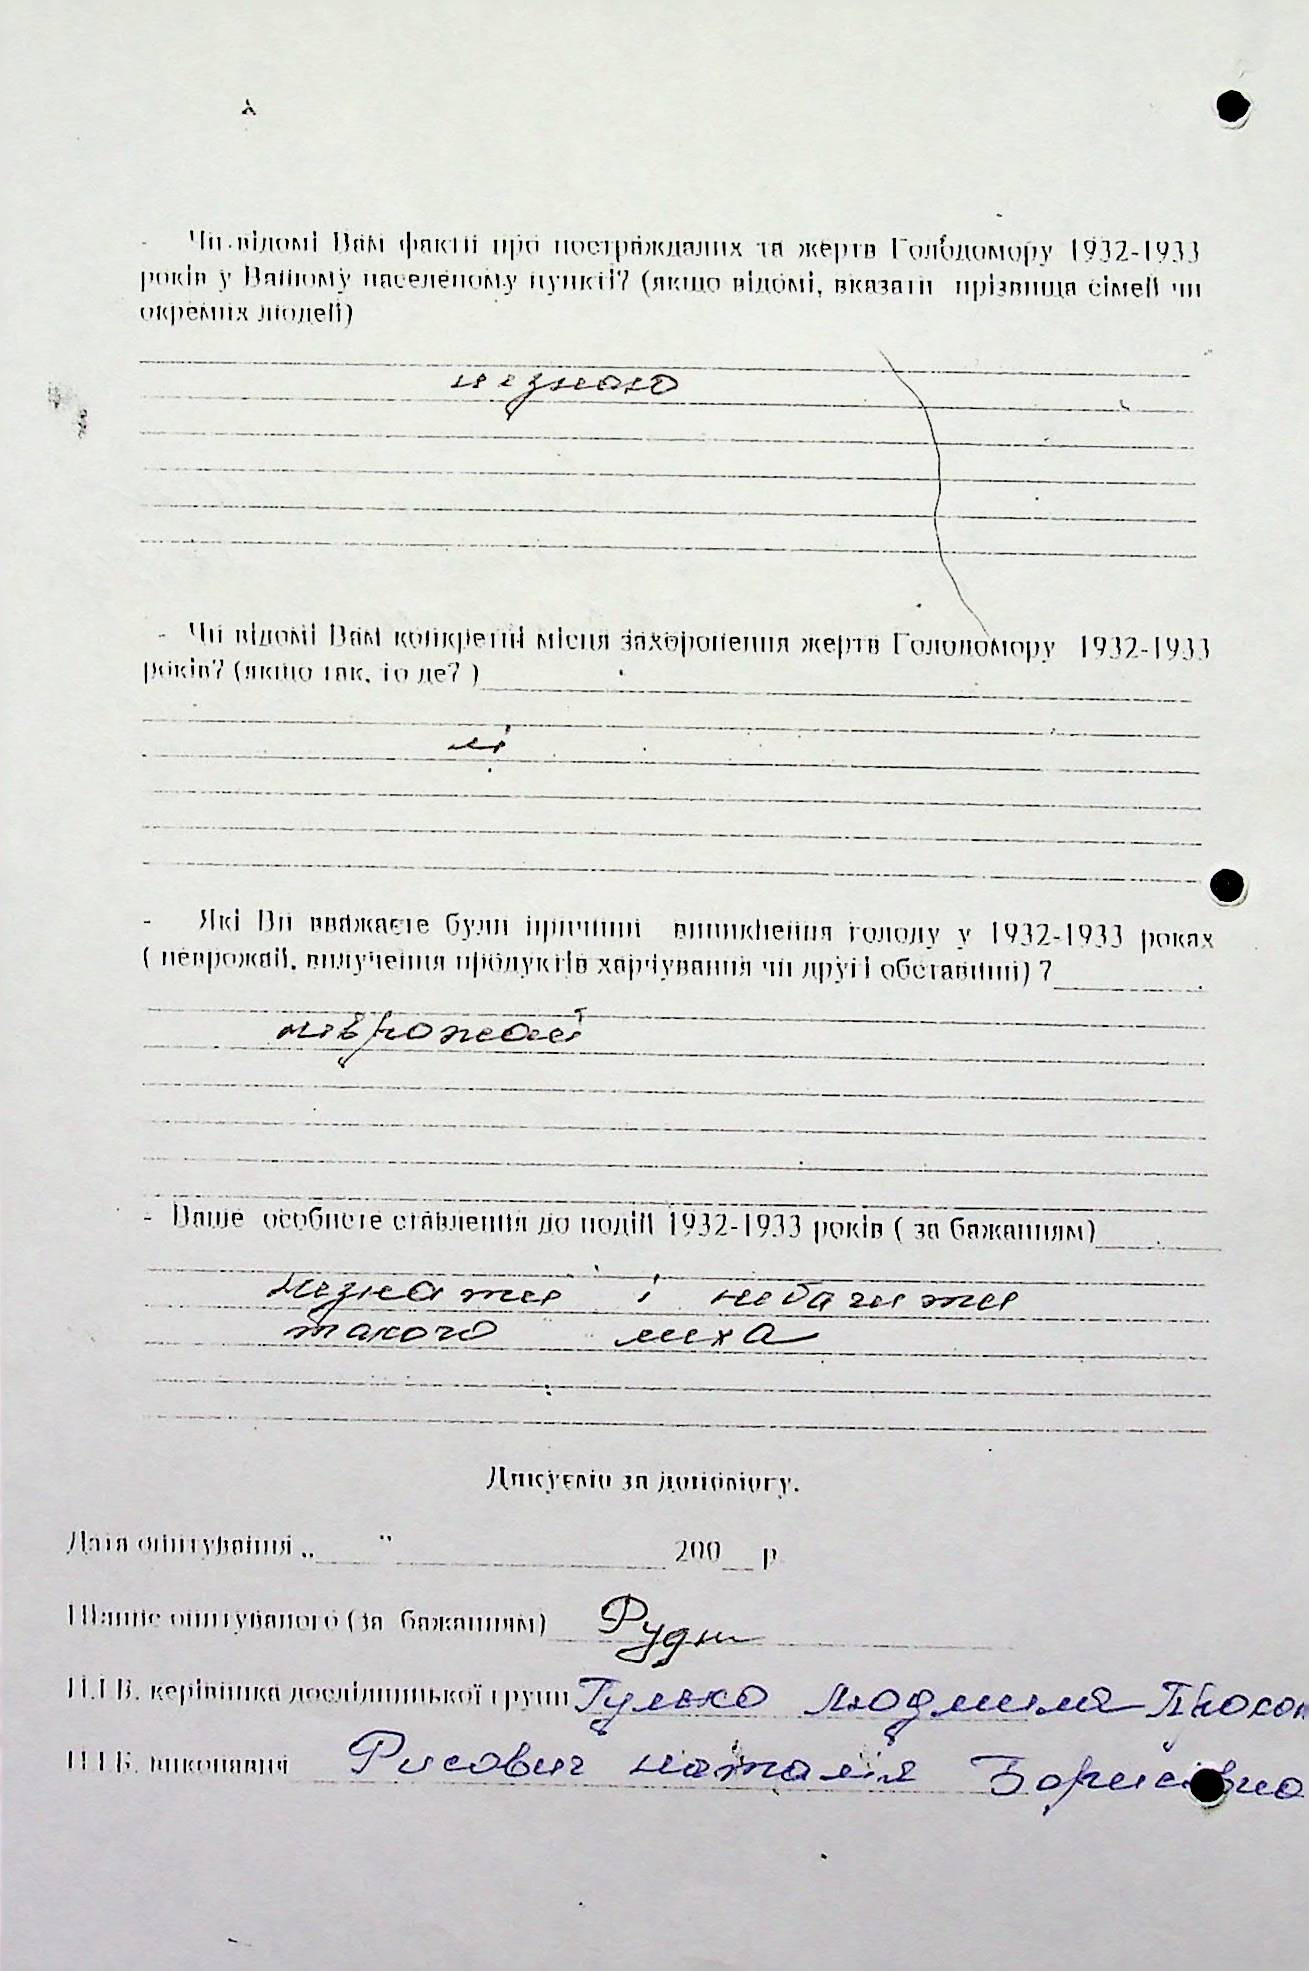 - Чи відомі Вам факти про постраждалих та жертв Голодомору 1932-1933
років у Вашому населеному пункті? (якщо відомі, вказати прізвища сімей чи
окремих людей)
незнаю
- Чи відомі Вам конкретні місця захоронення жертв Голодомору 1932-1933
років? (якщо так, то де? )
ні
- Які Ви вважаєте були причини виникнення голоду у 1932-1933 роках
( неврожай, вилучення продуктів харчування чи другі обставини) ?
неврожаї
- Ваше особисте ставлення до подій 1932-1933 років ( за бажанням)
незнати і небачити
такого лиха
Дякуємо за допомогу.
Дата опитування „ " 200 р
Підпис опитуваного (за бажанням) Рудн
П.І Б. керівника дослідницької групи Гулько Людмила
П.І Б. виконавця Рисович наталія Борисівна